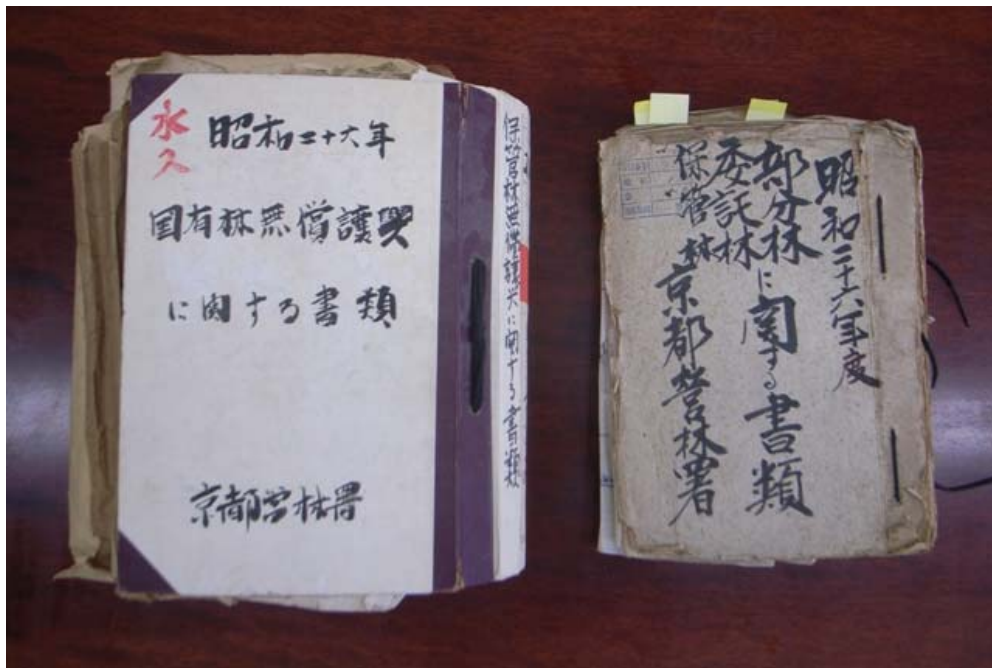 永久
昭和二十六年
国有林無償譲與
に関する書類
京都営林署
保管林無償譲与に関する書類
昭和二十六年度
部分林
委託林
保管林
に関する書類
京都営林署